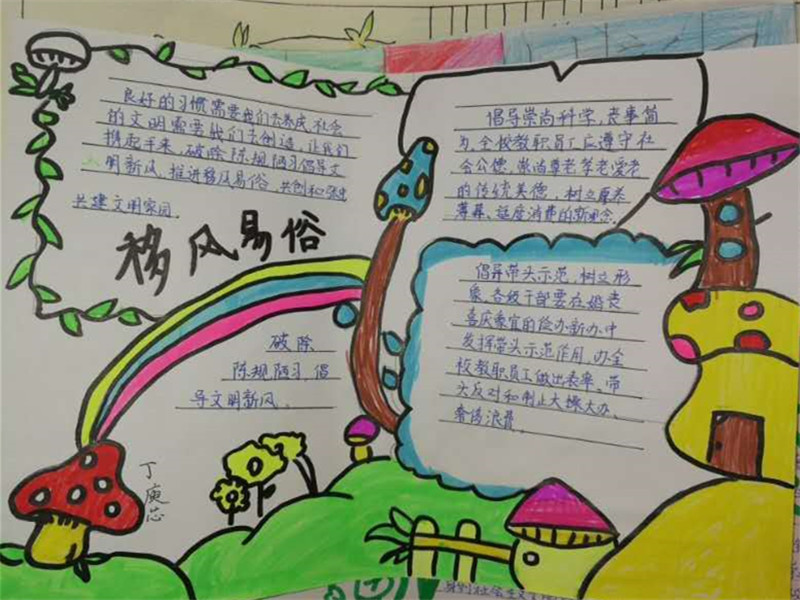 良好的习惯需要我们去养成,社会
的文明需要我们去创造,让我们
携起手来,破除陈规陋习倡导文
明新风,推进移风易俗,共创和谐
共建文明家园。
移风易俗
破除
陈规陋习,倡
导文明新风。
丁庾芯
倡导崇尚科学,丧事简
办,全校教职员工应遵守社
会公德,崇尚尊老孝老爱老
的传统美德,树立厚养
薄葬、适度消费的新观念。
倡导带头示范,树立形
象,各级干部要在婚丧
喜庆事宜的俭办新办中
发挥带头示范作用,办全
校教职员工做出表率,带
头反对和制止大操大办、
奢侈浪费。